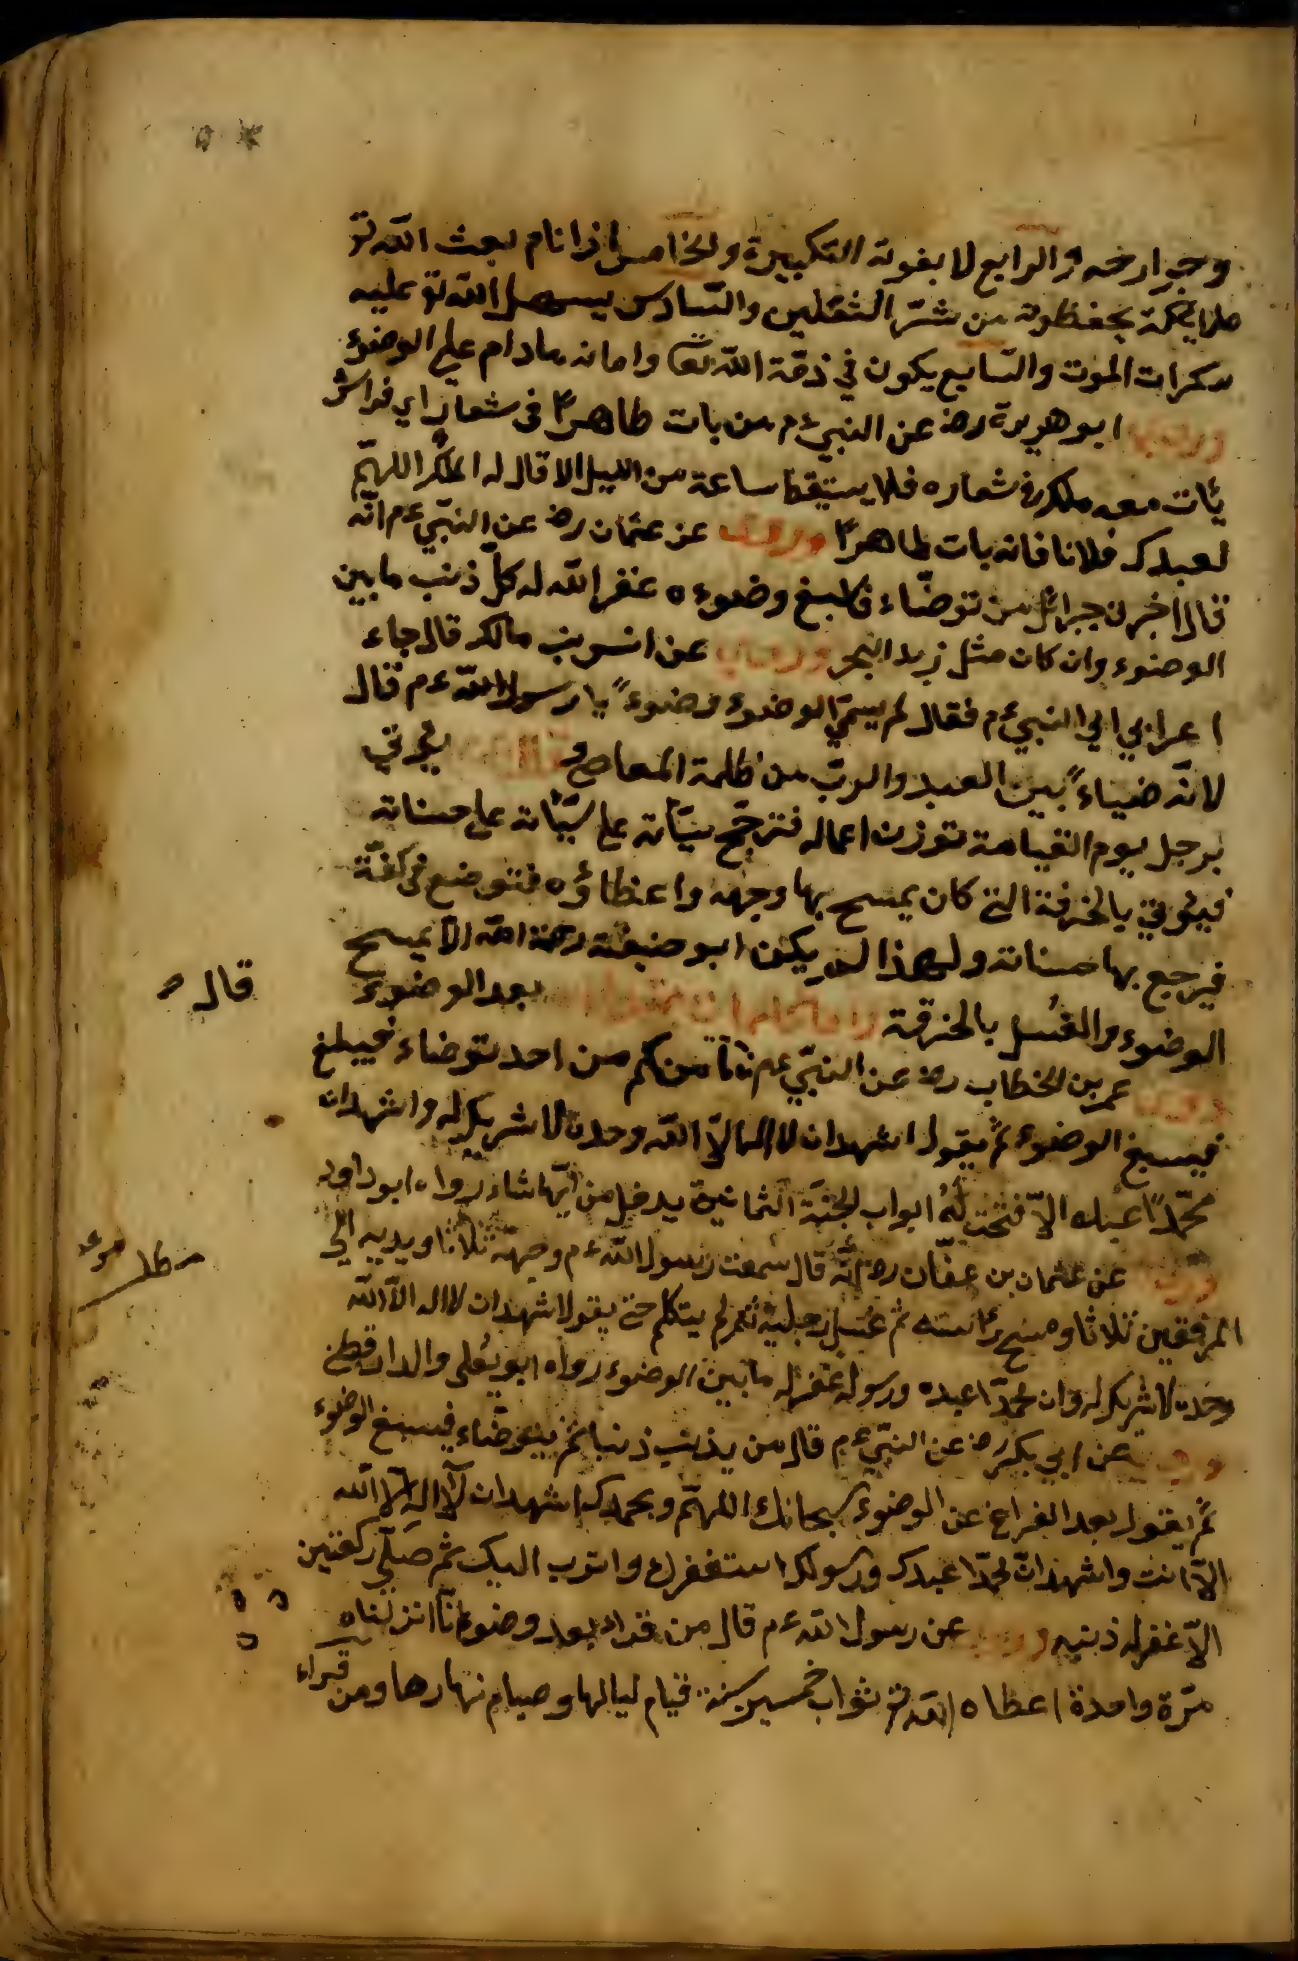 وجوارحه والرابع لا يفوته التكبيرة والخامس اذا نام بعث الله تع
ملايكة يحفظونه من شرّ الثقلين والسّادس يسهل الله تع عليه
سكرات الموت والسّابع يكون في ذمّة الله تعا وامانه مادام علي الوضوء
ابو هريرة رض عن النبي ءم من بات طاهرًا فى شعار اي فراش
يأت معه ملك في شعاره فلا يستيقظ ساعة من الليل الا قال له الملك اللهمّ
لعبدك فلانا فانه بات طاهرًا وروى عن عثمان رض عن النبّي ءم انّه
قال اخبرن جبرائل من توضّاء فاسبغ وضوءه غفر الله له كلّ ذنب مابين
الوضوء وان كان مثل زبد البحر وروى عن انس بن مالك قال جاء
اعرابي الي النبي ءم فقال لم يسمّي الوضوء وضوءً يا رسول الله ءم قال
لانّه ضياءً بين العبد والربّ من ظلمة المعاصي وقال يؤتي
برجل يوم القيامة توزن اعماله فترجّح سيّاته على حسناته
فيؤتي بالخرقة التي كان يمسح بها وجهه واعضاؤه فتوضع في كفّة
فيرجع بها حسناته ولهذا لم يكن ابو حنيفة رحمة الله الا يمسح
الوضوء والغسل بالخرقة بعد الوضوء
قال
عمر بن الخطاب رض عن النبّي ءم ما منكم من احد يتوضاء فيبلغ
فيسبغ الوضوء ثم يقول اشهد ان لا اله الاّ الله وحده لا شريك له واشهد ان
محمّدًا عبده الاّ فتحت لهُ ابواب الجنّة الثمانية يدخل من ايّها شاء رواه ابو داود
عن عثمان بن عفّان رض انّه قال سمعت رسول الله ءم وجهه ثلاثا ويديه الي
المرفقين ثلاثا ومسح برأسه ثم غسل رجليه ثم لم يتكلم حتى يقول اشهد ان لا اله الاّ الله
وحده لا شريك له وان محمدّا عبده ورسوله غفر له مابين الوضوء رواه ابو يعلى والدار قطن
عن ابي بكر رض عن النبّي ءم قال من يذنب ذنبا ثم يتوضّاء فيسبغ الوضوء
ثم يقول بعد الفراغ عن الوضوء سبحانك اللهمّ وبحمدك اشهد ان لا اله الاّ الله
الاّ انت واشهد انّ محمدّا عبدك ورسولك استغفرك واتوب اليك ثم صلّي ركعتين
الاّ غفر له ذنبه وروى عن رسول الله ءم قال من قراء بعد وضوء انّا انزلناه
مرّة واحدة اعطاه الله تع ثواب خمسين سنة قيام ليالها وصيام نهارها ومن قراء